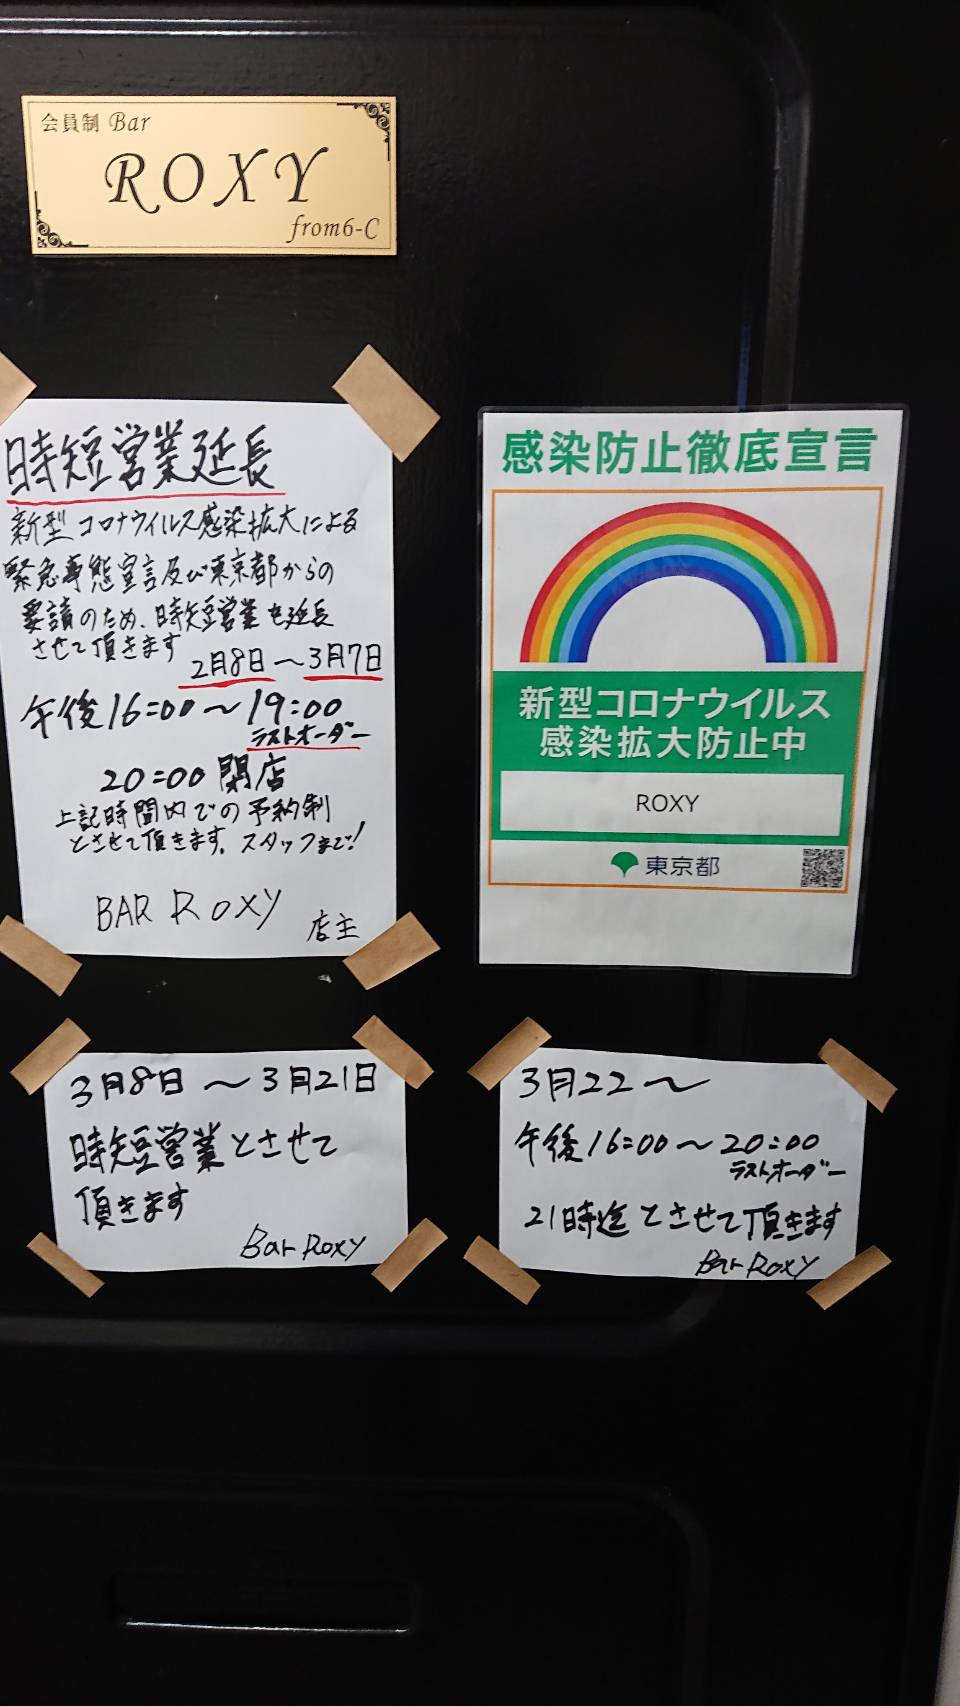 会員制 Bar
ROXY
from6-C
時短営業延長
新型コロナウイルス感染拡大による
緊急事態宣言及び東京都からの
要請のため、時短営業を延長
させて頂きます
2月8日～3月7日
午後16:00～19:00
ラストオーダー
20:00 閉店
上記時間内での予約制
とさせて頂きます。スタッフまで!
BAR ROXY
店主
感染防止徹底宣言
新型コロナウイルス
感染拡大防止中
ROXY
東京都
3月8日～3月21日
時短営業とさせて
頂きます
Bar Roxy
3月22～
午後16:00～20:00
ラストオーダー
21時迄とさせて頂きます
Bar Roxy